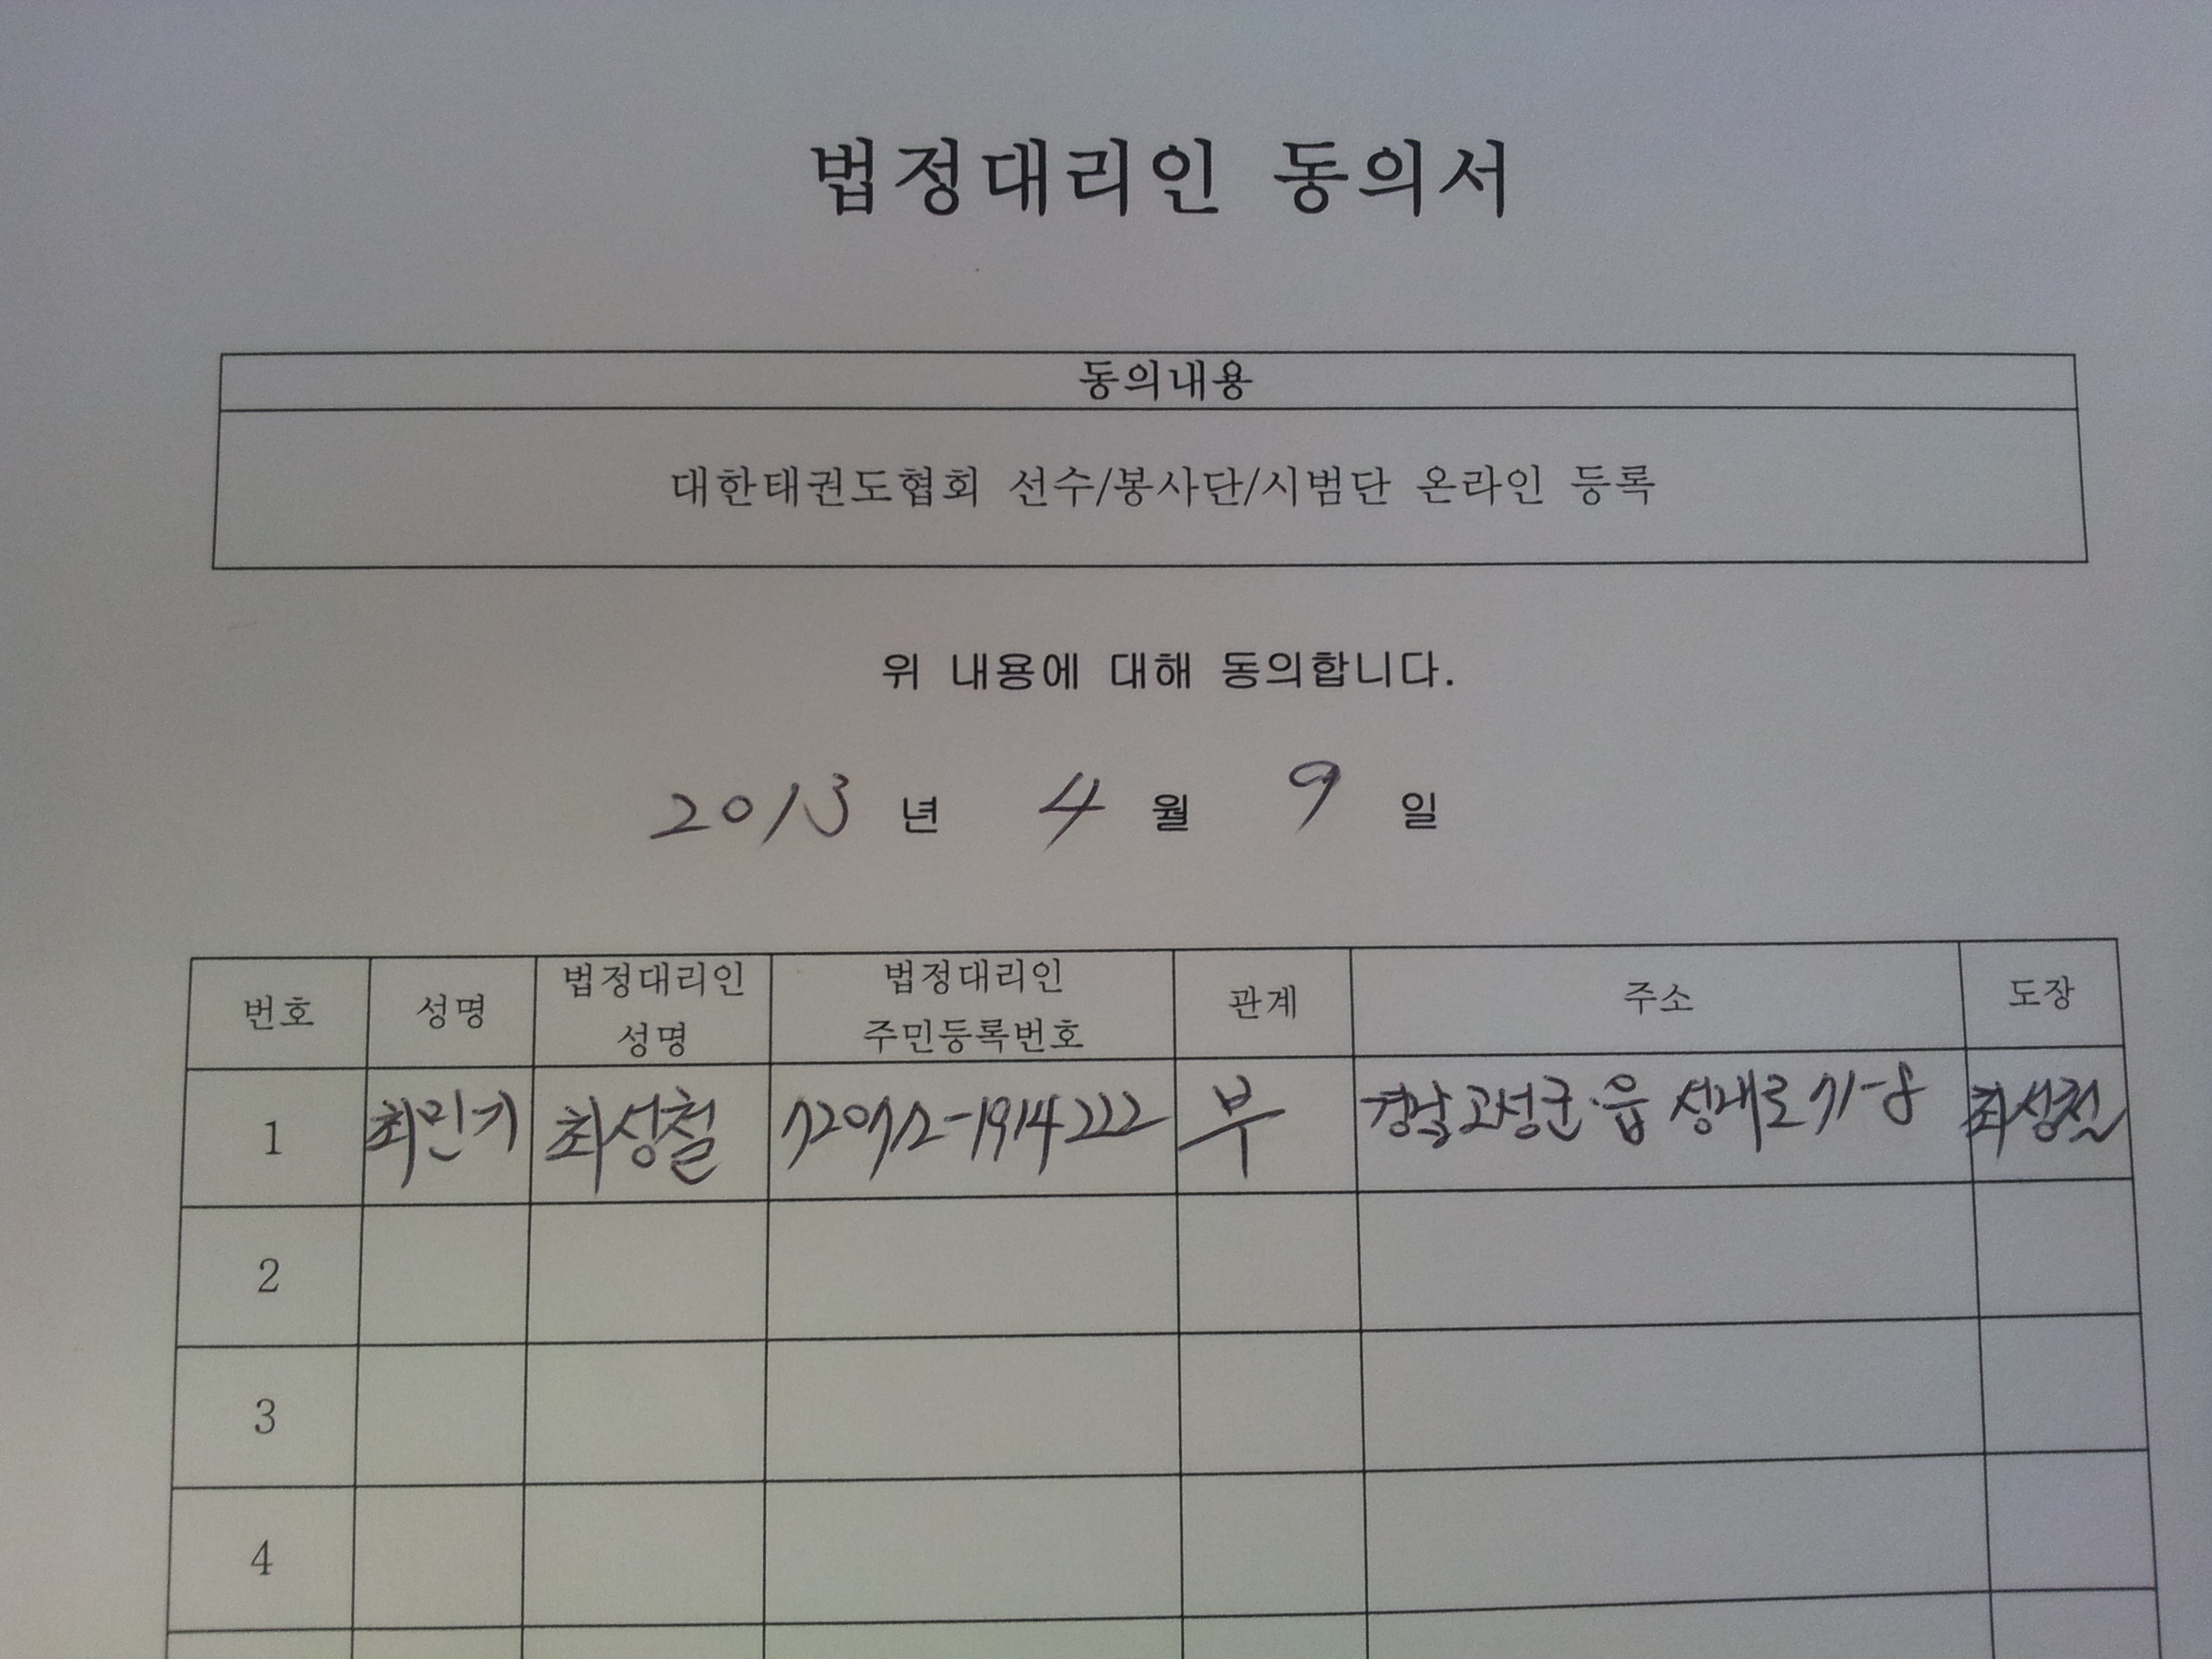 법정대리인 동의서
동의내용
대한태권도협회 선수/봉사단/시범단 온라인 등록
위 내용에 대해 동의합니다.
2013 년 4 월 9 일
번호 성명 법정대리인 성명 법정대리인 주민등록번호 관계 주소 도장
1 최민기 최성철 720712-1914222 부 경남 고성군·읍 성내로 71-8 최성철
2
3
4